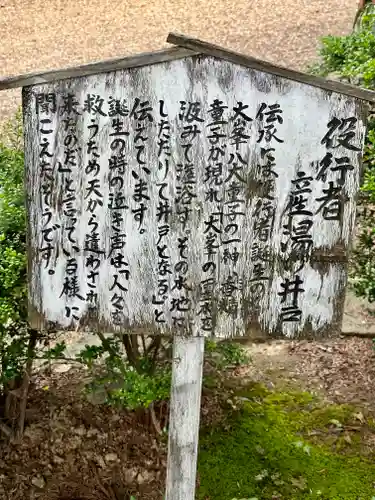 役行者
産湯の井戸
伝承では役行者誕生の時
大峯八大童子の一神、香精
童子が現れ、「大峯の瀑水を
汲みて灌浴す。その水地に
しただりて井戸となる」と
伝えています。
誕生の時の泣き声は、「人々を
救うため天から遣わされて
来たのだ」と言って、右様に
聞こえたそうです。